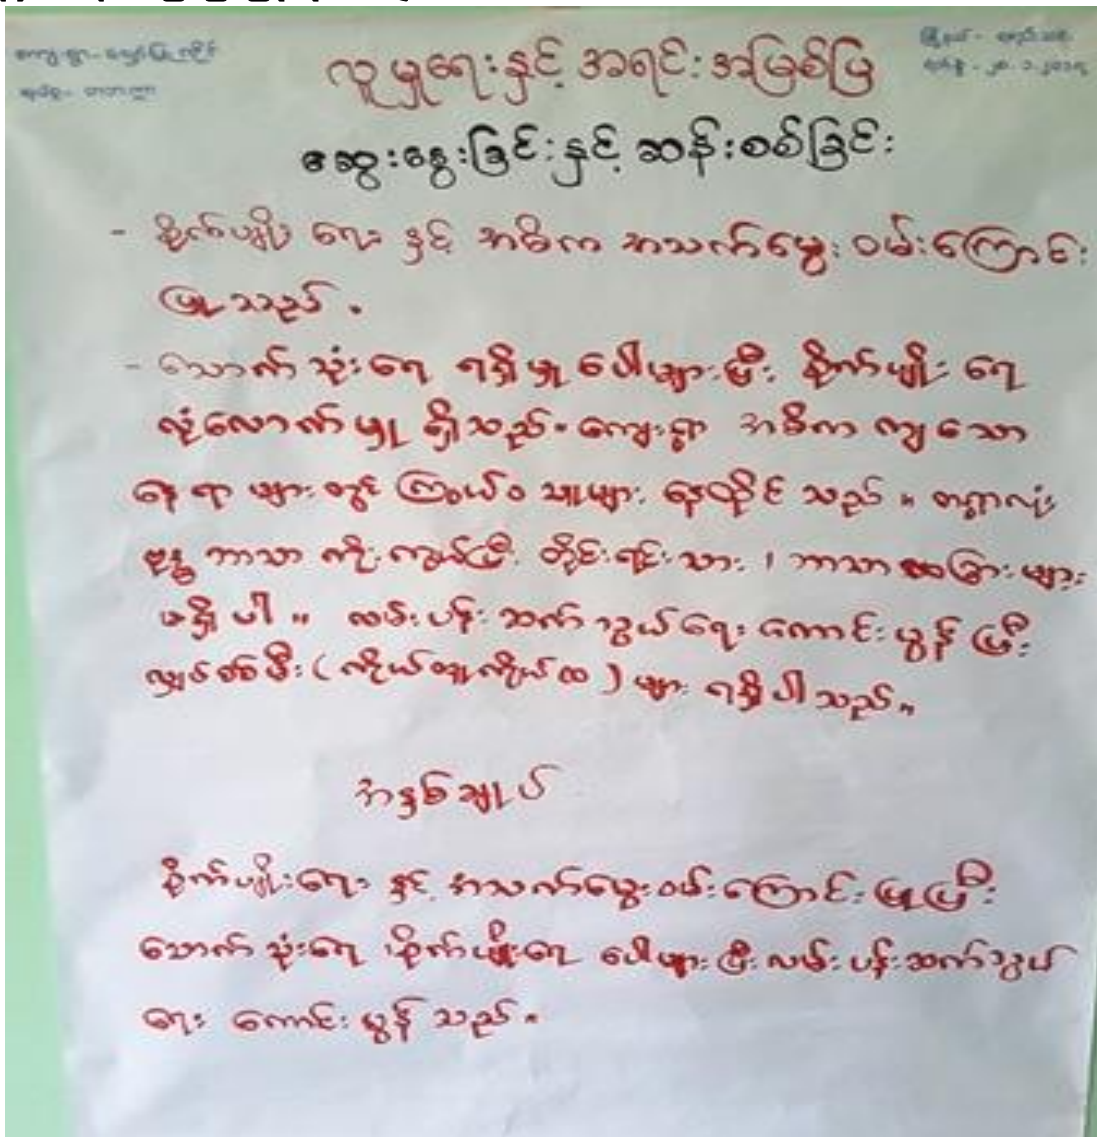 လူမှုရေးနှင့် အရင်းအမြစ်ပြ
ဆွေးနွေးခြင်းနှင့် ဆန်းစစ်ခြင်း
- စိုက်ပျိုးရေး နှင့် အဓိက အသက်မွေးဝမ်းကြောင်း
ပြုသည်။
- သောက်သုံးရေ ရရှိမှု ပေါများပြီး စိုက်ပျိုးရေ
လုံလောက်မှု ရှိသည်။ ကျေးရွာ အဓိက ကျသော
နေရာများတွင် ကြွယ်ဝသူများ နေထိုင်သည်။ တရွာလုံး
ဗုဒ္ဓဘာသာ ကိုးကွယ်ပြီး တိုင်းရင်းသား၊ ဘာသာအခြားများ
မရှိပါ။ လမ်းပန်းဆက်သွယ်ရေး ကောင်းမွန်ပြီး
လျှပ်စစ်မီး (ကိုယ်ထူကိုယ်ထ) များ ရရှိပါသည်။
အနှစ်ချုပ်
စိုက်ပျိုးရေး နှင့် အသက်မွေးဝမ်းကြောင်း ပြုပြီး
သောက်သုံးရေ စိုက်ပျိုးရေ ပေါများပြီး လမ်းပန်းဆက်သွယ်
ရေး ကောင်းမွန်သည်။